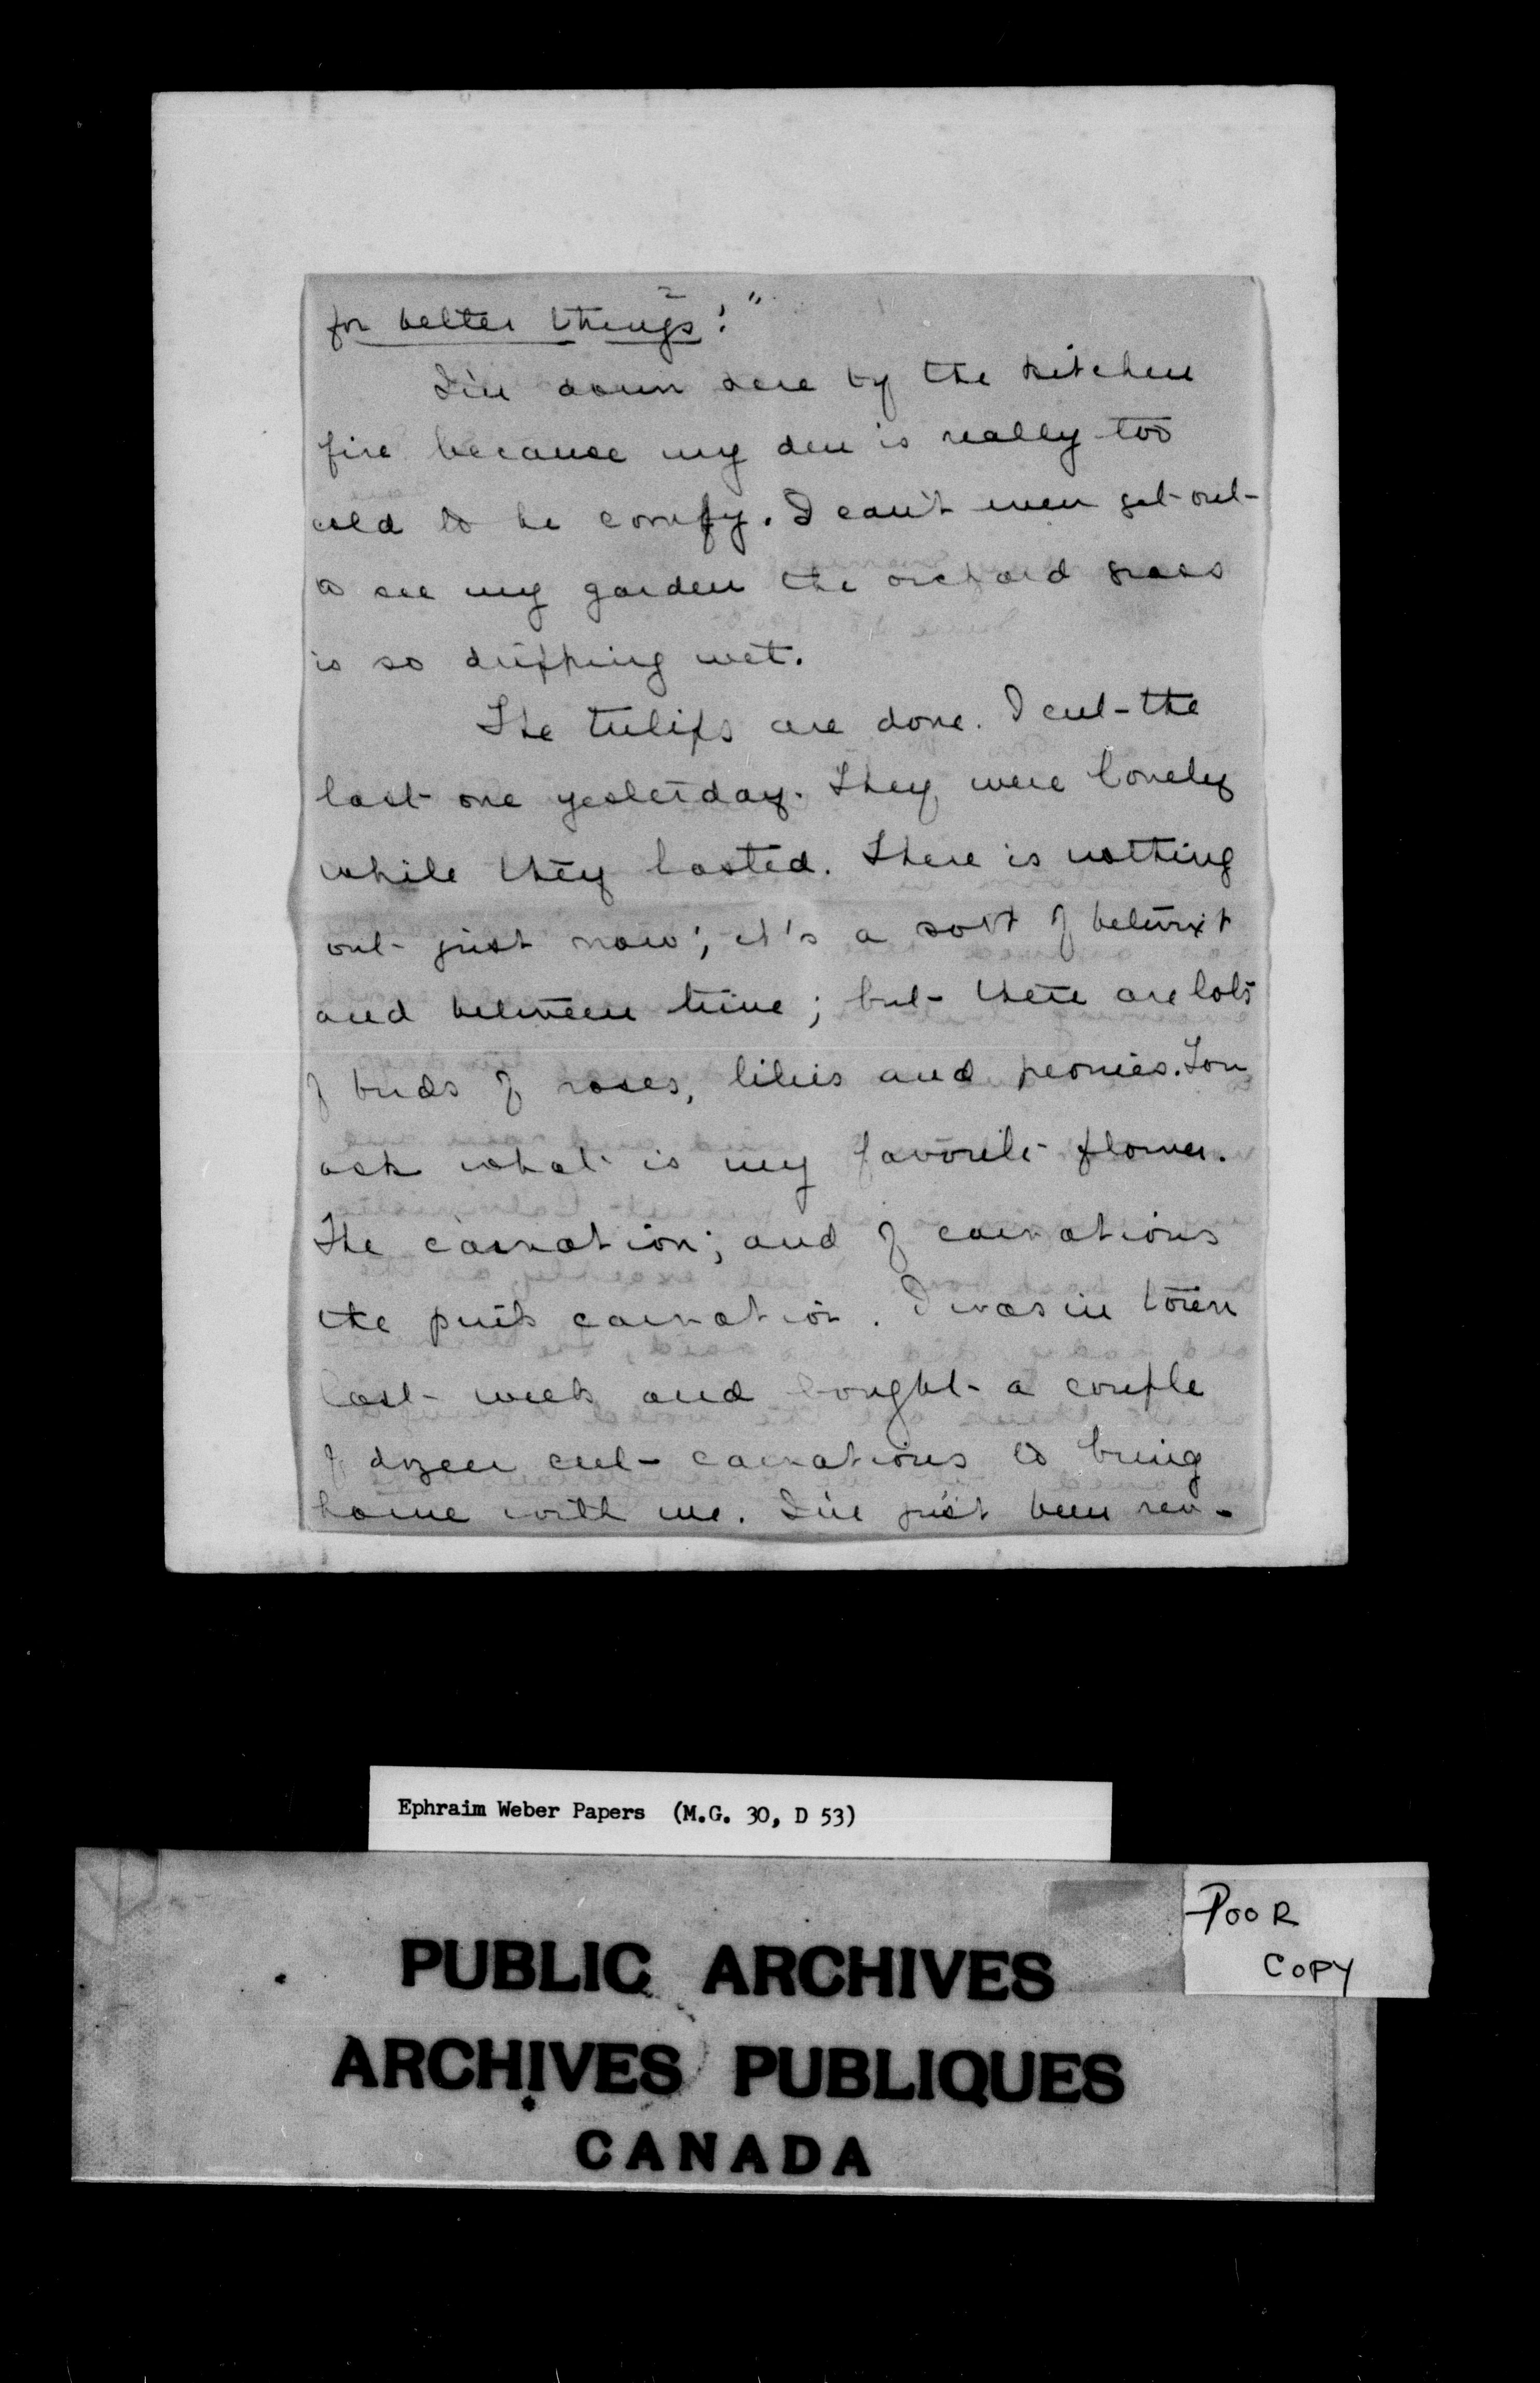 2
for better things!"
I'm down here by the kitchen
fire because my den is really too
cold to be comfy. I can't even get out
to see my garden the orchard grass
is so dripping wet.
The tulips are done. I cut the
last one yesterday. They were lovely
while they lasted. There is nothing
out just now; it's a sort of betwixt
and between time; but there are lots
of buds of roses, lilies and peonies. You
ask what is my favorite flower.
The carnation; and of carnations
the pink carnation. I was in town
last week and bought a couple
of dozen cut carnations to bring
home with me. I've just been rev-
Ephraim Weber Papers (M.G. 30, D 53)
POOR
COPY
PUBLIC ARCHIVES
ARCHIVES PUBLIQUES
CANADA